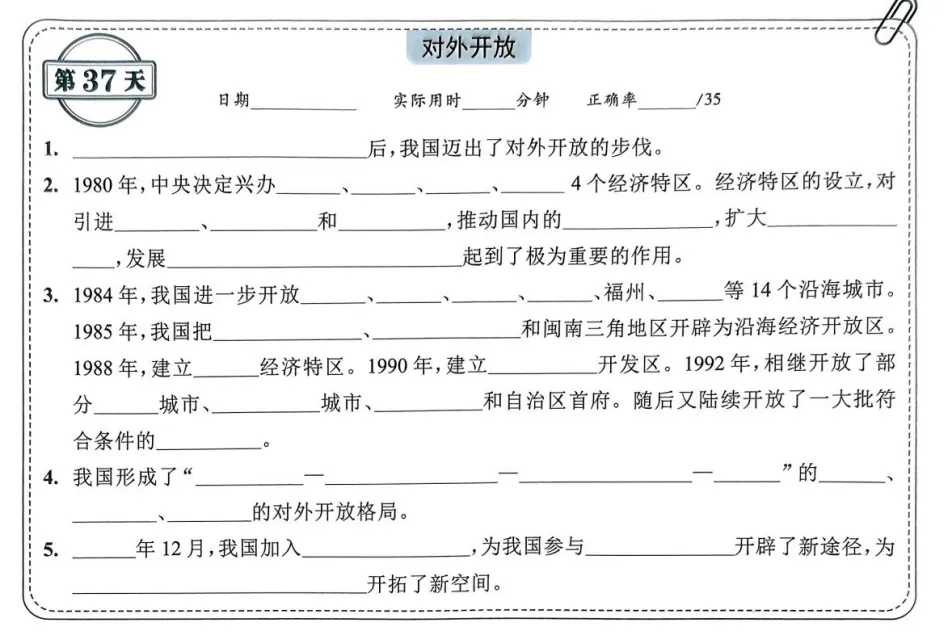 对外开放
第37天
日期__________ 实际用时_____分钟 正确率_____/35
1. ____________________后,我国迈出了对外开放的步伐。
2. 1980年,中央决定兴办_____、_____、_____、_____ 4个经济特区。经济特区的设立,对
引进________、__________和__________,推动国内的______________,扩大____________
____,发展____________________起到了极为重要的作用。
3. 1984年,我国进一步开放______、______、______、______、福州、______等14个沿海城市。
1985年,我国把______________、______________和闽南三角地区开辟为沿海经济开放区。
1988年,建立______经济特区。1990年,建立__________开发区。1992年,相继开放了部
分______城市、__________城市、__________和自治区首府。随后又陆续开放了一大批符
合条件的__________。
4. 我国形成了“__________—________________—________________—______”的______、
________、________的对外开放格局。
5. ______年12月,我国加入________________,为我国参与______________开辟了新途径,为
____________________开拓了新空间。